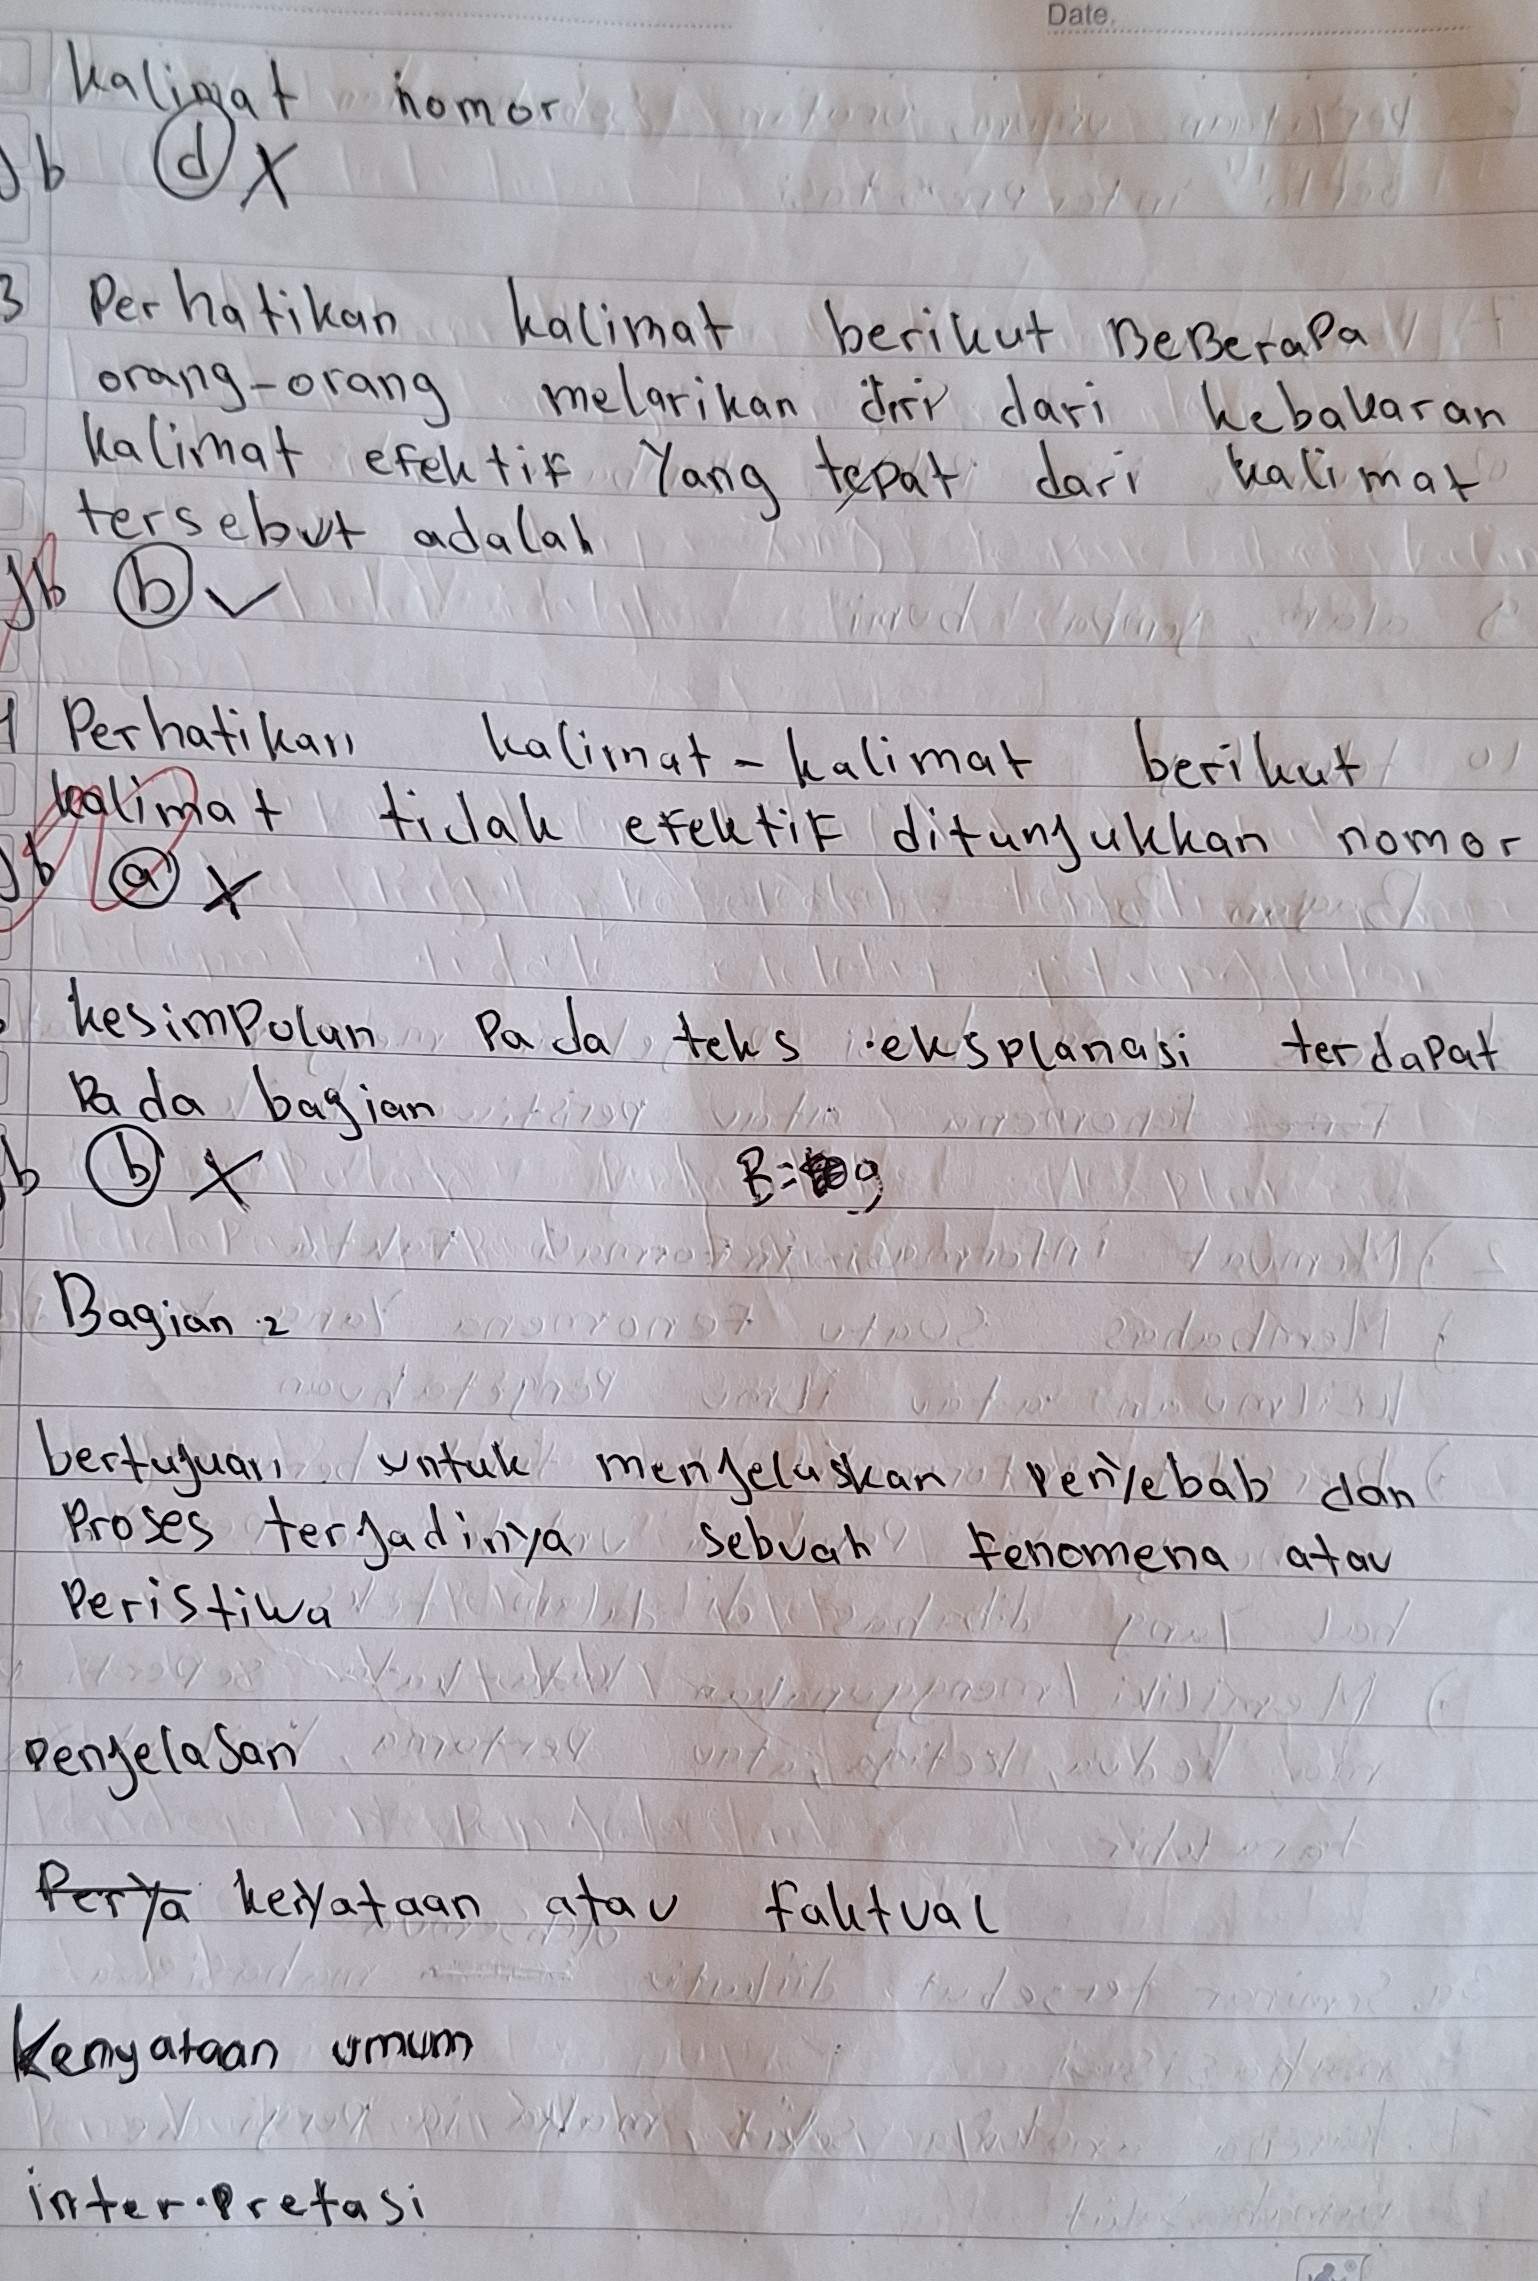 Date.
kalimat nomor
Jb d X
3 Perhatikan kalimat berikut BeBeraPa
orang-orang melarikan diri dari kebakaran
kalimat efektif Yang tepat dari kalimat
tersebut adalah
Jb b ✓
Perhatikan kalimat-kalimat berikut
kalimat tidak efektif ditunjukkan nomor
Jb a X
kesimPulan Pada teks eksplanasi terdaPat
Pada bagian
Jb b X B= 9
Bagian 2
bertujuan untuk menjelaskan Penyebab dan
Proses terjadinya sebuah fenomena atau
Peristiwa
Penjelasan
Perya kenyataan atau faktual
Kenyataan umum
inter.Pretasi